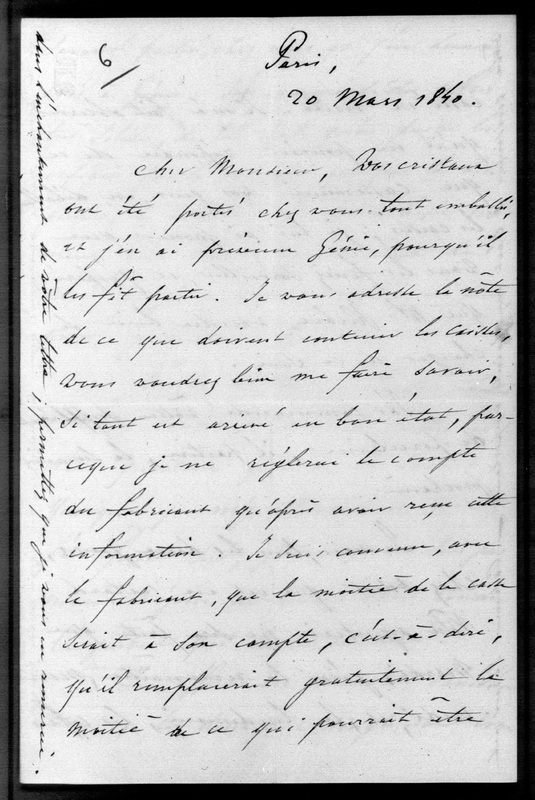 6
Paris,
20 Mars 1840.
Cher Monsieur, Vos cristaux
ont été portés chez vous tout emballés,
et j'en ai prévenu Génie, pourqu'il
les fît partir. Je vous adresse la nôte
de ce que doivent contenir les caisses,
vous voudrez bien me faire savoir,
si tout est arrivé en bon état, par-
ceque je ne règlerai le compte
du fabricant qu'après avoir reçu cette
information. Je suis convenu, avec
le fabricant, que la moitié de la casse
serait à son compte, c'est-à-dire,
qu'il remplacerait gratuitement la
moitié de ce qui pourrait être
dans l'enchantement de vôtre lettre, permettez que je vous en remercie.